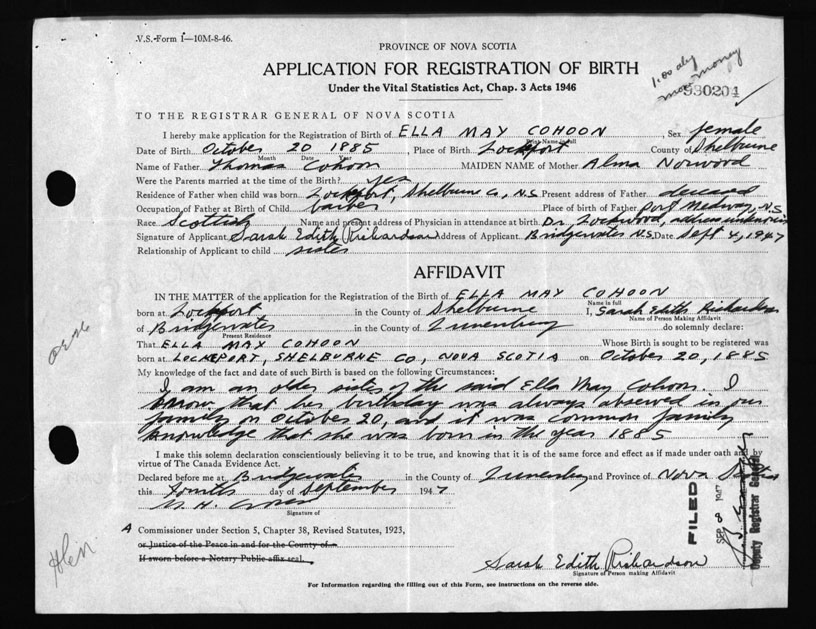 V.S.-Form 1—10M-8-46.
PROVINCE OF NOVA SCOTIA
APPLICATION FOR REGISTRATION OF BIRTH
Under the Vital Statistics Act, Chap. 3 Acts 1946
1.00 only
money
930204
TO THE REGISTRAR GENERAL OF NOVA SCOTIA
I hereby make application for the Registration of Birth of ELLA MAY COHOON, Sex female
Print Name in full
Date of Birth October 20 1885 Place of Birth Lockport County of Shelburne
Month Date Year
Name of Father Thomas Cohoon MAIDEN NAME of Mother Alma Norwood
Were the Parents married at the time of the Birth? yes
Residence of Father when child was born Lockport, Shelburne Co, N.S. Present address of Father deceased
Occupation of Father at Birth of Child barber Place of birth of Father Port Medway, N.S.
Race Scottish Name and present address of Physician in attendance at birth Dr. Lockwood, address unknown
Signature of Applicant Sarah Edith Richardson Address of Applicant Bridgewater N.S. Date Sept 4, 1947
Relationship of Applicant to child sister
AFFIDAVIT
IN THE MATTER of the application for the Registration of the Birth of ELLA MAY COHOON
Name in full
born at Lockport in the County of Shelburne I, Sarah Edith Richardson
Name of Person Making Affidavit
of Bridgewater in the County of Lunenburg do solemnly declare:
Present Residence
That ELLA MAY COHOON Whose Birth is sought to be registered was
born at LOCKEPORT, SHELBURNE CO, NOVA SCOTIA on October 20, 1885
My knowledge of the fact and date of such Birth is based on the following Circumstances:
I am an older sister of the said Ella May Cohoon. I
know that her birthday was always observed in our
family on October 20, and it was common family
knowledge that she was born in the year 1885
I make this solemn declaration conscientiously believing it to be true, and knowing that it is of the same force and effect as if made under oath and by
virtue of The Canada Evidence Act.
Declared before me at Bridgewater in the County of Lunenburg and Province of Nova Scotia
this fourth day of September 1947
Signature of
A Commissioner under Section 5, Chapter 38, Revised Statutes, 1923,
or Justice of the Peace in and for the County of
If sworn before a Notary Public affix seal.
Sarah Edith Richardson
Signature of Person making Affidavit
For Information regarding the filling out of this Form, see instructions on the reverse side.
FILED
SEP 8 1947
Deputy Registrar General